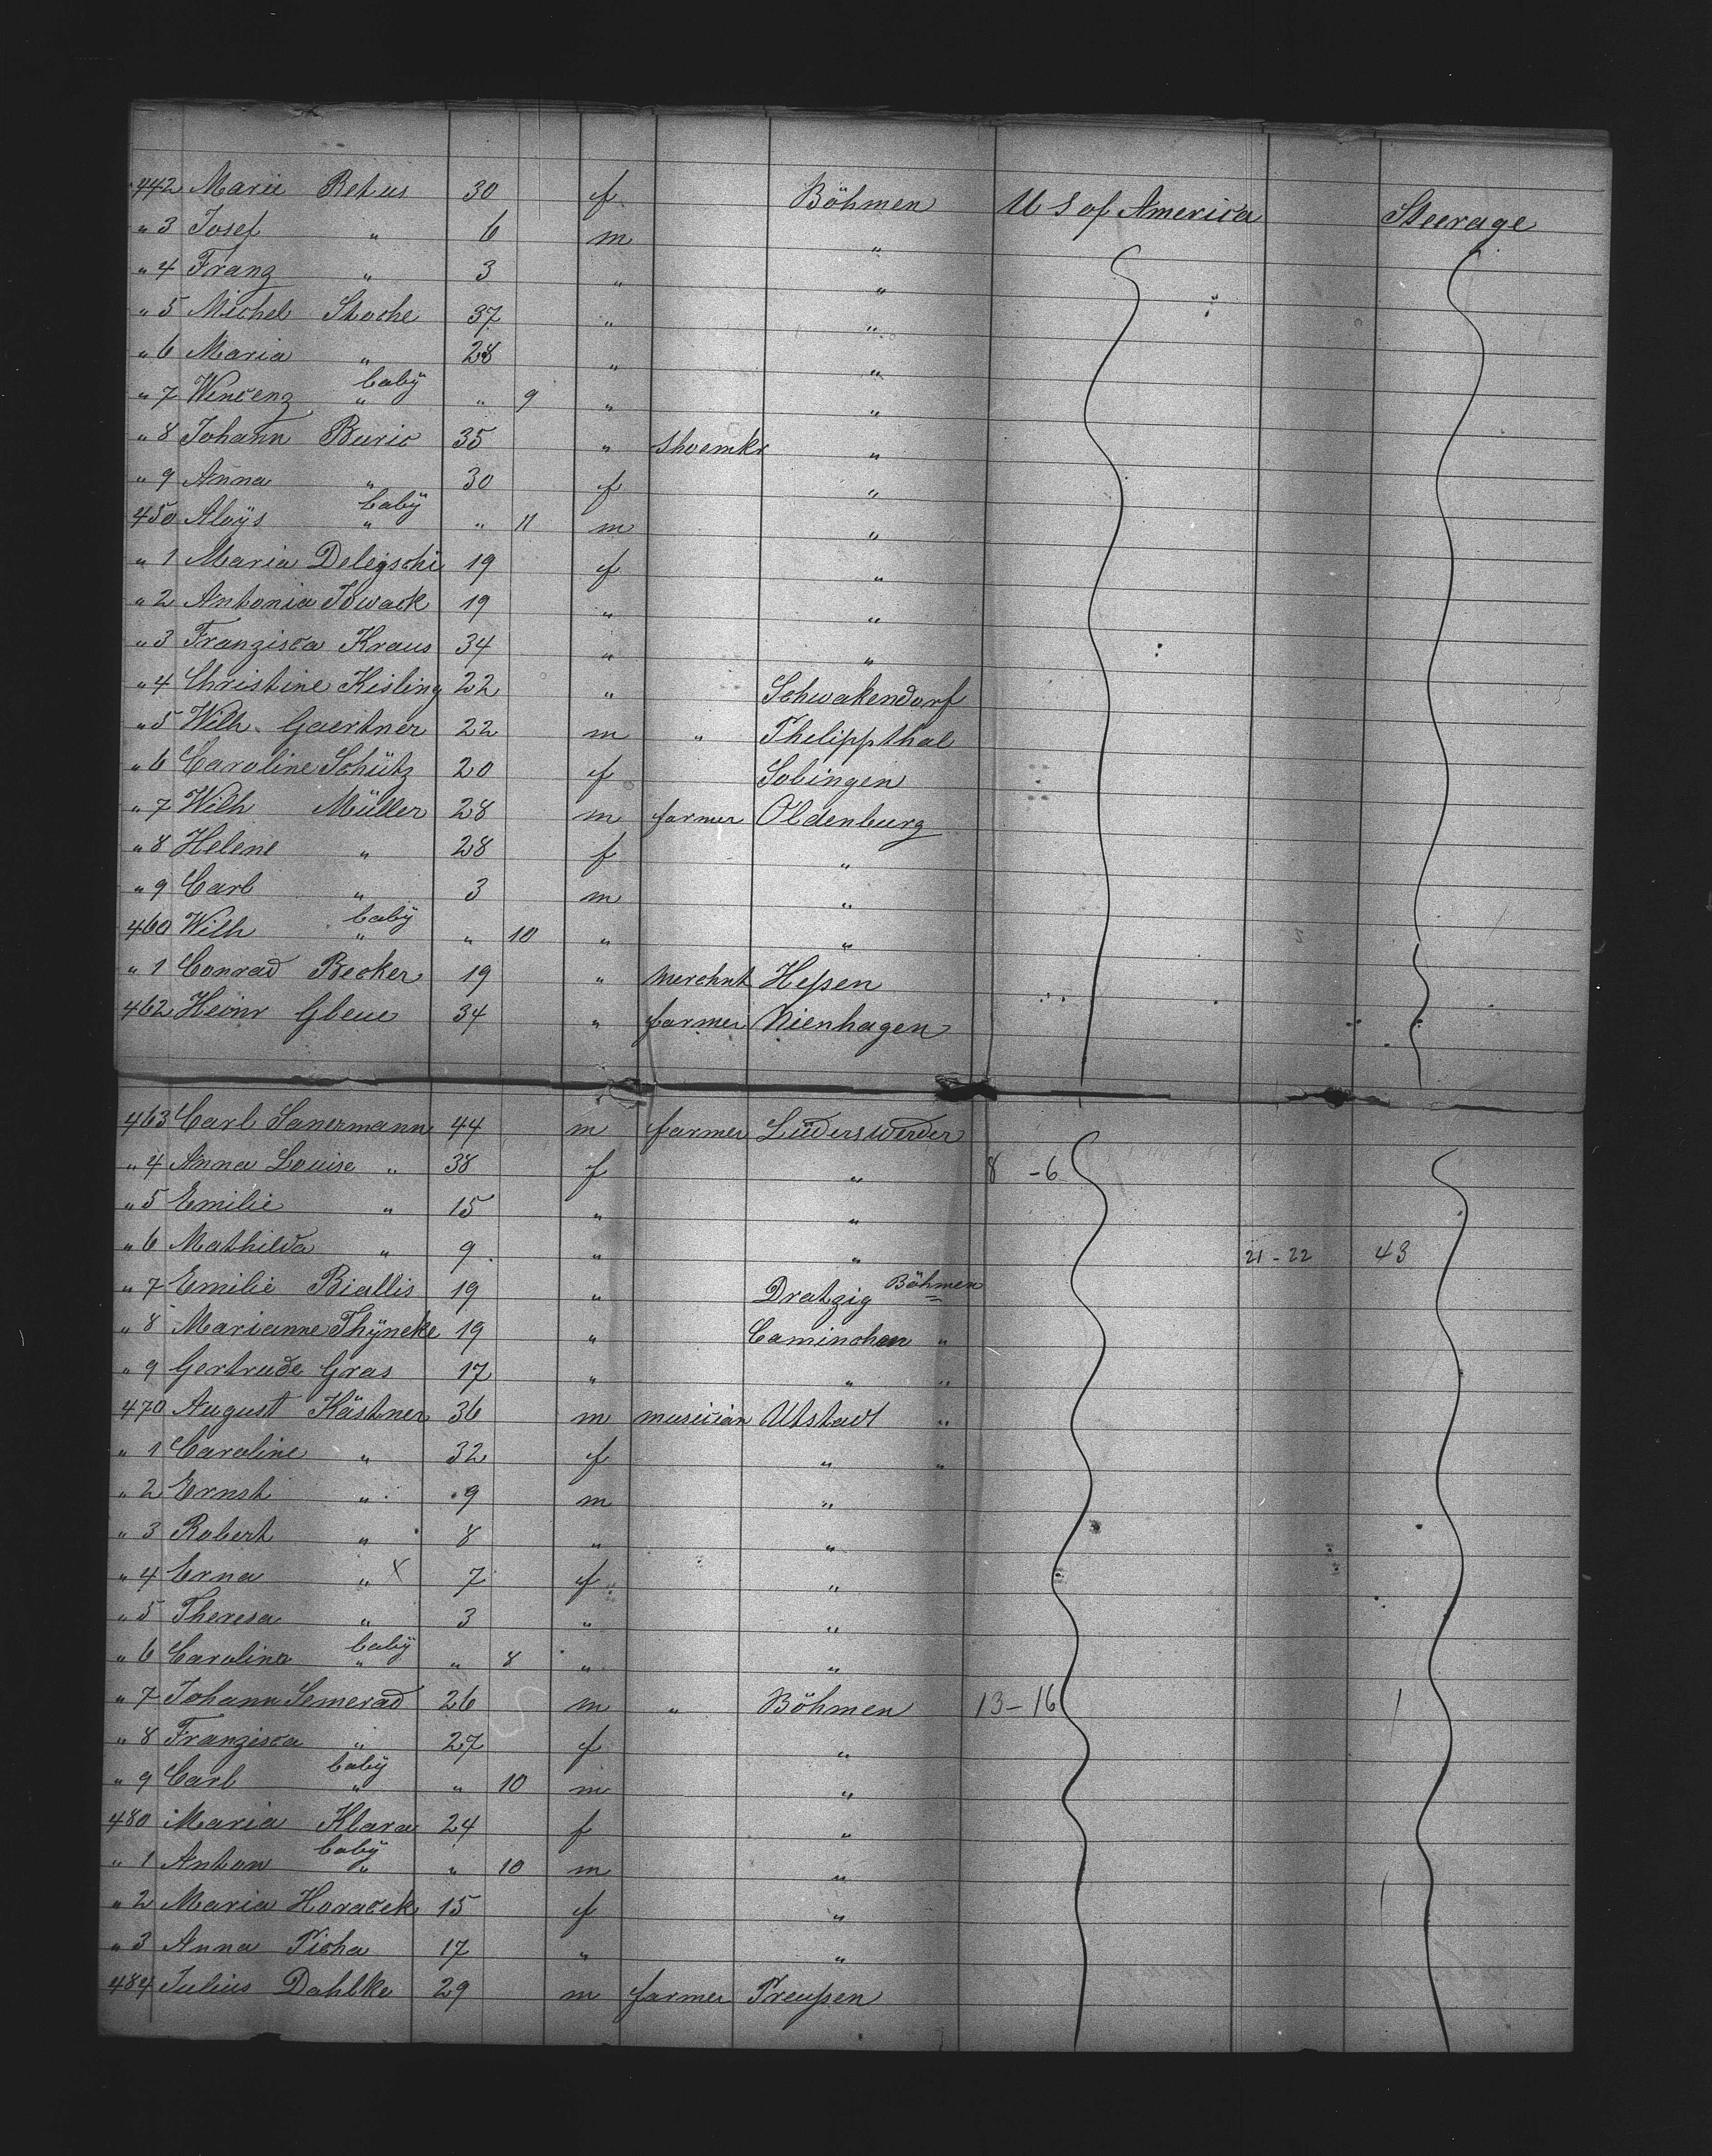 442 Marie Rehus 30 f Böhmen U S of America Steerage
" 3 Josef " 6 m "
" 4 Franz " 3 " "
" 5 Michel Stoche 37 " "
" 6 Maria " 28 " "
" 7 Wincenz baby " " 9 " "
" 8 Johann Buric 35 " Shoemkr "
" 9 Anna " 30 f "
450 Aloÿs baby " " 11 m "
" 1 Maria Delegschi 19 f "
" 2 Antonia Towack 19 " "
" 3 Franzisca Kraus 34 " "
" 4 Christine Kisling 22 " Schwakendorf
" 5 Wilh. Gaertner 22 m " Philippthal
" 6 Caroline Schütz 20 f Solingen
" 7 Wilh Müller 28 m farmer Oldenburg
" 8 Helene " 28 f "
" 9 Carl " 3 m "
460 Wilh baby " " 10 " "
" 1 Conrad Becker 19 " Merchnt Heßen
462 Heinr Gleue 34 " farmer Nienhagen
463 Carl Sanermann 44 m farmer Lüderswerder
" 4 Anna Louise " 38 f " 8 - 6
" 5 Emilie " 15 " "
" 6 Mathilda " 9 " " 21 - 22 43
" 7 Emilie Biallis 19 " Dratzig Böhmen
" 8 Marianne Thÿneke 19 " Caminchen "
" 9 Gertrude Gras 17 " " "
470 August Kästner 36 m musician Altstadt "
" 1 Caroline " 32 f " "
" 2 Ernst " 9 m "
" 3 Robert " 8 " "
" 4 Erna " x 7 f "
" 5 Theresa " 3 " "
" 6 Caroline baby " " 8 " "
" 7 Johann Semerad 26 m " Böhmen 13 - 16
" 8 Franzisca " 27 f "
" 9 Carl baby " " 10 m "
480 Maria Klara 24 f "
" 1 Anton baby " " 10 m "
" 2 Maria Horacek 15 f "
" 3 Anna Ticha 17 " "
484 Julius Dahlke 29 m farmer Preußen